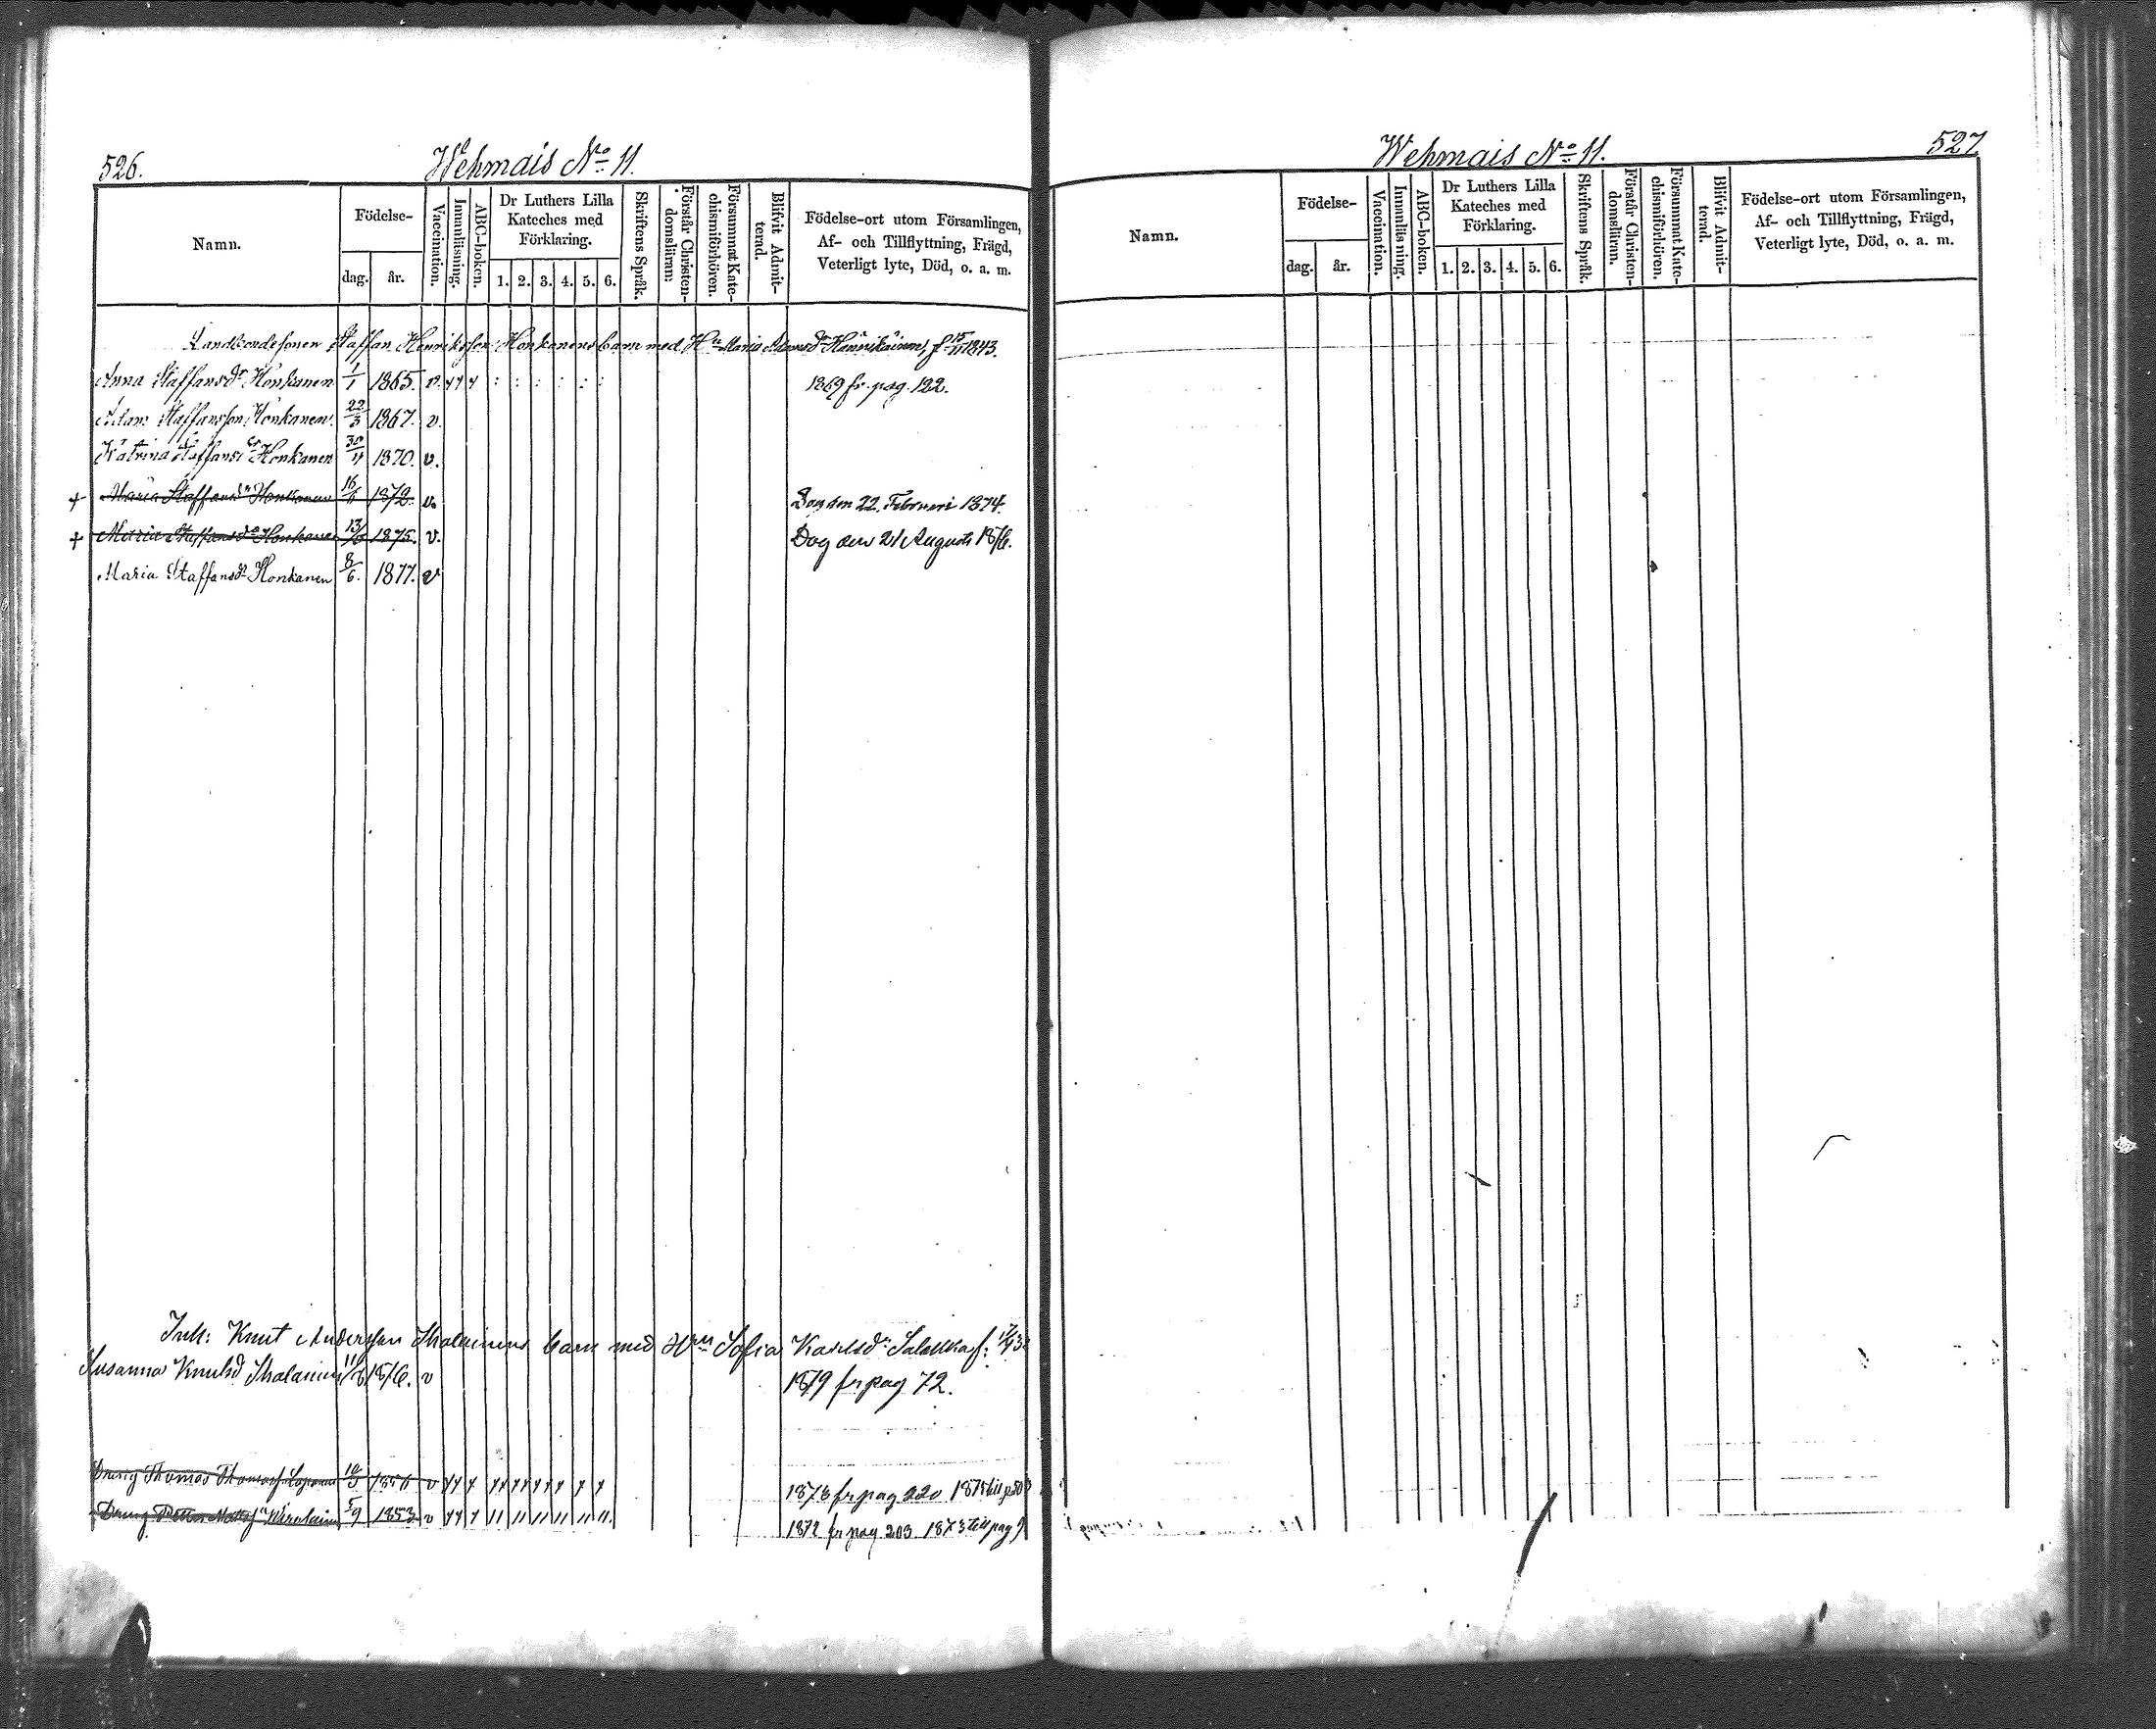 526.
Wehmais No 11.
Namn.
Födelse-
dag.
år.
Vaccination.
Innanläsning.
ABC-boken.
Dr Luthers Lilla
Kateches med
Förklaring.
1. 2. 3. 4. 5. 6.
Skriftens Språk.
Förstår Christen-
domsläran.
Försummat Kate-
chismiförhören.
Blifvit Admit-
terad.
Födelse-ort utom Församlingen,
Af- och Tillflyttning, Frägd,
Veterligt lyte, Död, o. a. m.
Landbondesonen Staffan Henriksson Honkanens barn med Hu Maria Adamsdr Heinikäinen, f 15/11 1843.
Anna Staffansdr Honkanen 1/1 1865. v. 1869 fr. pag. 122.
Adam Staffansson Honkanen. 22/3 1867. v.
Katrina Staffansdr Honkanen 30/11 1870. v.
+ Maria Staffansdr Honkanen 16/6 1872. v. Dog den 22. Februari 1874.
+ Maria Staffansdr Honkanen 1875. v. Dog den 21 Augusti 1876.
Maria Staffansdr Honkanen 8/6. 1877. v
Inh: Knut Andersson Ihalainens barn med Hun Sofia Karlsdr
Susanna Knutsd Ihalainen 1876. v 1879 fr pag 72.
Dräng Thomas Thomass. 1856 v 1878 fr pag 220
Dräng Petter Matts. 5/9 1853 v 1872 fr pag 203 1873 till pag
527.
Wehmais No 11.
Namn.
Födelse-
dag.
år.
Vaccination.
Innanläsning.
ABC-boken.
Dr Luthers Lilla
Kateches med
Förklaring.
1. 2. 3. 4. 5. 6.
Skriftens Språk.
Förstår Christen-
domsläran.
Försummat Kate-
chismiförhören.
Blifvit Admit-
terad.
Födelse-ort utom Församlingen,
Af- och Tillflyttning, Frägd,
Veterligt lyte, Död, o. a. m.